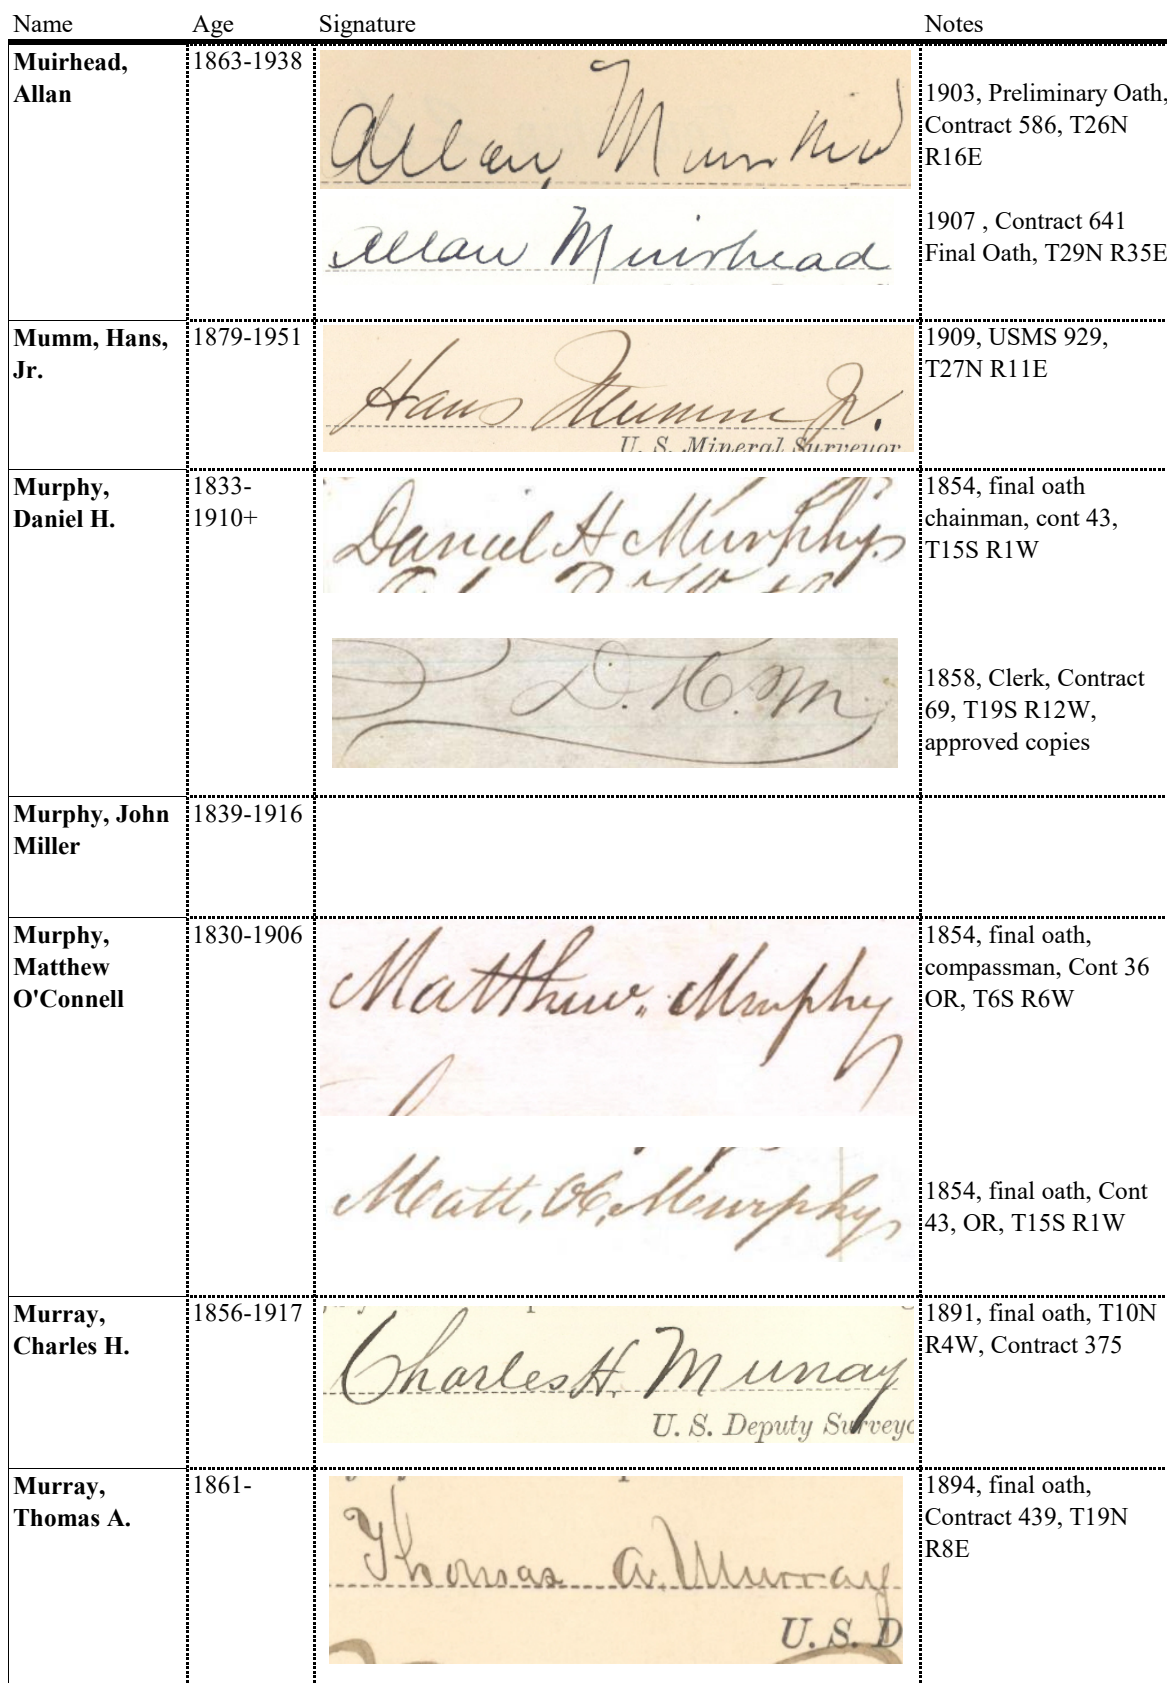 Name Age Signature Notes
Muirhead, 1863-1938
Allan
Allan Muirhead
1903, Preliminary Oath,
Contract 586, T26N
R16E
Allan Muirhead
1907 , Contract 641
Final Oath, T29N R35E
Mumm, Hans, 1879-1951
Jr.
Hans Mumm Jr.
U. S. Mineral Surveyor
1909, USMS 929,
T27N R11E
Murphy, 1833-
Daniel H. 1910+
Daniel H Murphy
1854, final oath
chainman, cont 43,
T15S R1W
D. H. M
1858, Clerk, Contract
69, T19S R12W,
approved copies
Murphy, John 1839-1916
Miller
Murphy, 1830-1906
Matthew
O'Connell
Matthew Murphy
1854, final oath,
compassman, Cont 36
OR, T6S R6W
Matt, OC, Murphy
1854, final oath, Cont
43, OR, T15S R1W
Murray, 1856-1917
Charles H.
Charles H. Murray
U. S. Deputy Surveyo
1891, final oath, T10N
R4W, Contract 375
Murray, 1861-
Thomas A.
Thomas A. Murray
U. S. D
1894, final oath,
Contract 439, T19N
R8E